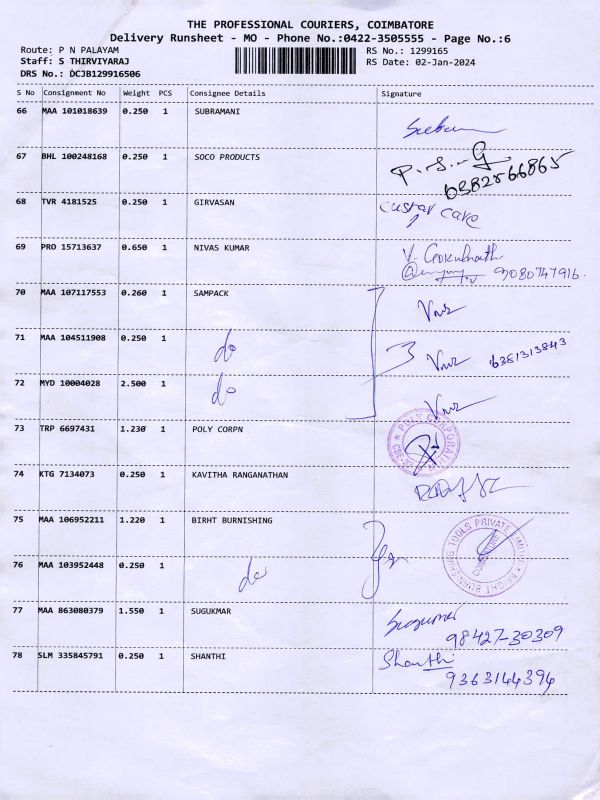 THE PROFESSIONAL COURIERS, COIMBATORE
Delivery Runsheet - MO - Phone No.:0422-3505555 - Page No.:6
Route: P N PALAYAM RS No.: 1299165
Staff: S THIRVIYARAJ RS Date: 02-Jan-2024
DRS No.: DCJB129916506
S No Consignment No Weight PCS Consignee Details Signature
66 MAA 101018639 0.250 1 SUBRAMANI
67 BHL 100248168 0.250 1 SOCO PRODUCTS P. S. G
6382566865
68 TVR 4181525 0.250 1 GIRVASAN custar care
69 PRO 15713637 0.650 1 NIVAS KUMAR V. Gokulnath
9080747916.
70 MAA 107117553 0.260 1 SAMPACK
71 MAA 104511908 0.250 1 do 3 6381313843
72 MYD 10004028 2.500 1 do
73 TRP 6697431 1.230 1 POLY CORPN POLY CORPORATION
74 KTG 7134073 0.250 1 KAVITHA RANGANATHAN
75 MAA 106952211 1.220 1 BIRHT BURNISHING BRIGHT BURNISHING TOOLS PRIVATE LIMITED
76 MAA 103952448 0.250 1 do
77 MAA 863080379 1.550 1 SUGUKMAR Sugumar
98427-30309
78 SLM 335845791 0.250 1 SHANTHI Shanthi
9363144394